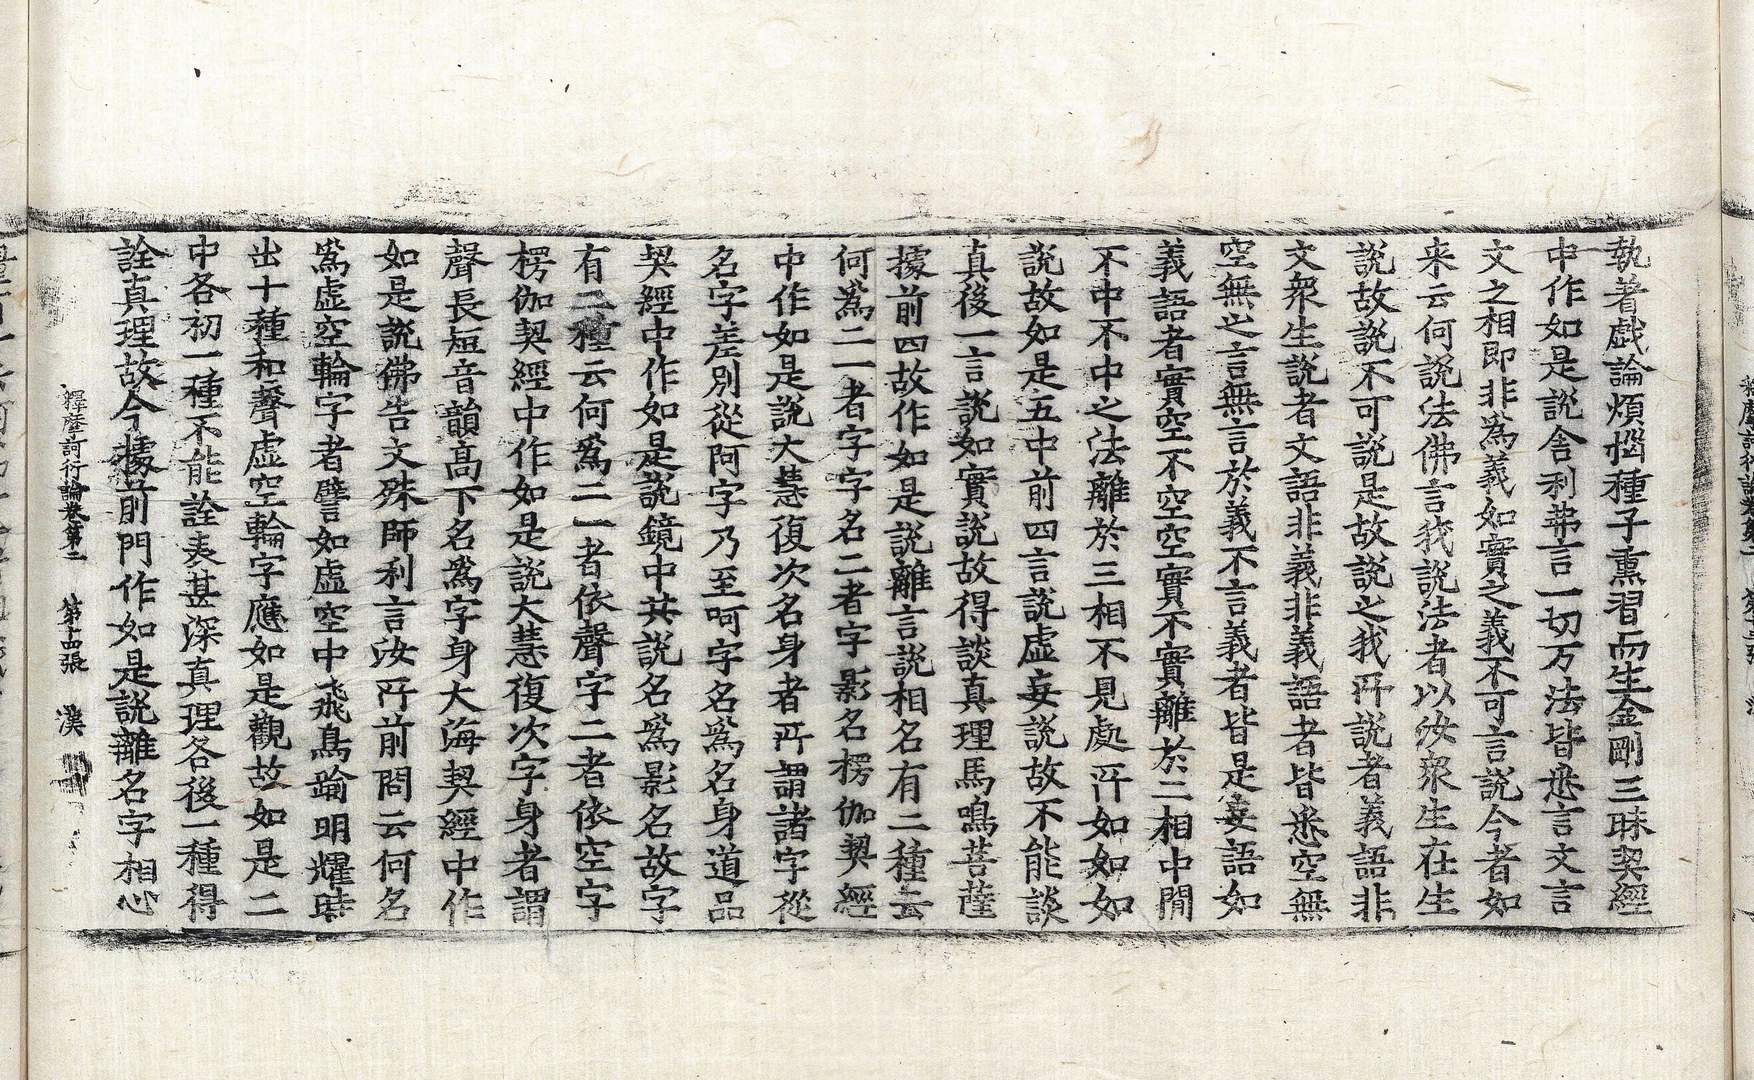 執著戯論煩惱種子熏習而生金剛三昧契經
中作如是説舎利弗言一切万法皆悉言文言
文之相即非爲義如實之義不可言説今者如
来云何説法佛言我説法者以汝衆生在生
説故説不可説是故説之我所説者義語非
文衆生説者文語非義非義語者皆悉空無
空無之言無言於義不言義者皆是妄語如
義語者實空不空空實不實離於二相中間
不中不中之法離於三相不見處所如如如
説故如是五中前四言説虚妄説故不能談
真後一言説如實説故得談真理馬鳴菩薩
據前四故作如是説離言説相名有二種云
何爲二一者字字名二者字影名楞伽契經
中作如是説大慧復次名身者所謂諸字從
名字差別從阿字乃至呵字名爲名身道品
契經中作如是説鏡中其説名爲影名故字
有二種云何爲二一者依聲字二者依空字
楞伽契經中作如是説大慧復次字身者謂
聲長短音韻髙下名爲字身大海契經中作
如是説佛告文殊師利言汝所前問云何名
爲虚空輪字者譬如虚空中飛鳥踰明耀時
出十種和聲虚空輪字應如是觀故如是二
中各初一種不能詮表甚深真理各後一種得
詮真理故今據前門作如是説離名字相心
釋摩訶衍論卷第二 第十四張 漢